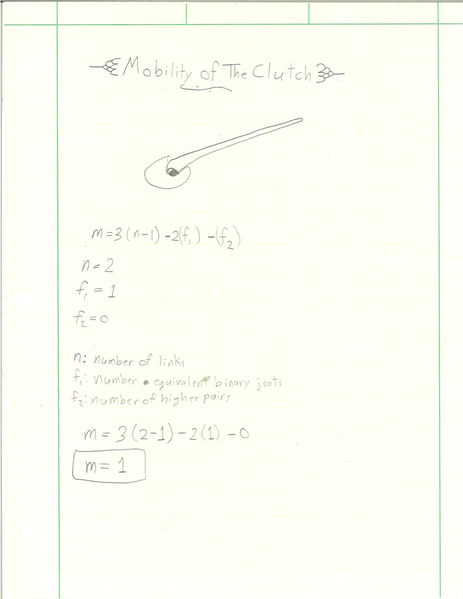 Mobility of The Clutch
m=3(n-1)-2(f₁)-(f₂)
n=2
f₁=1
f₂=0
n: number of links
f₁: number • equivalent binary jonts
f₂: number of higher pairs
m=3(2-1)-2(1)-0
m=1